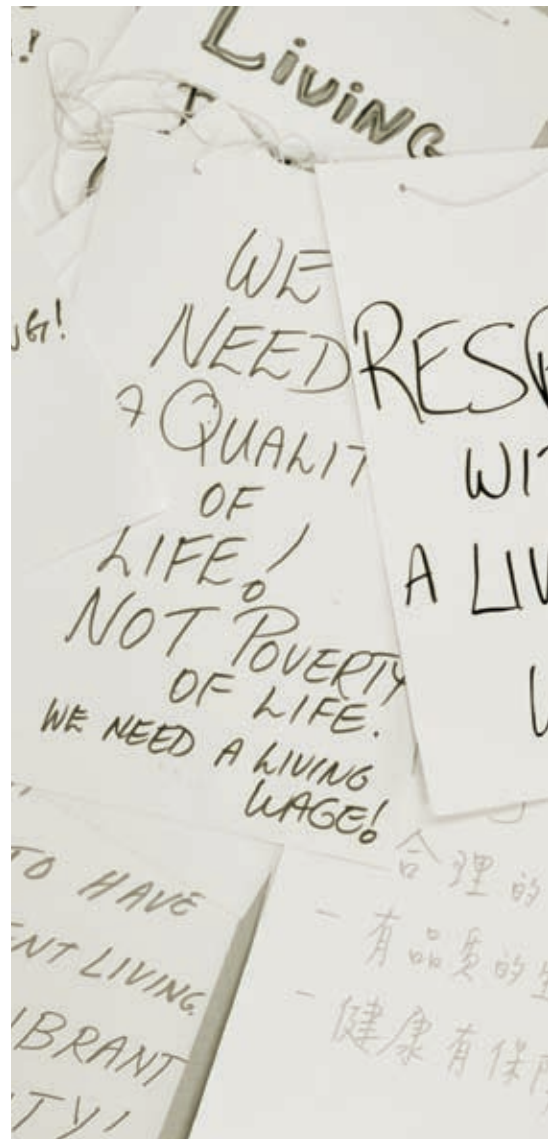 Living
WE
NEED
A QUALIT
OF
LIFE!
NOT POVERTY
OF LIFE.
WE NEED A LIVING
WAGE!
RESP
WIT
A LIV
W
NG!
TO HAVE
ENT LIVING.
IBRANT
ITY!
合理的
- 有品質的生
- 健康有保障